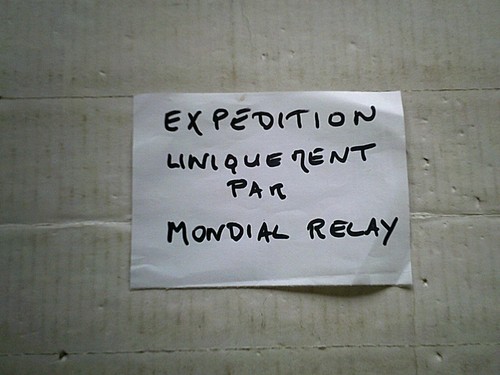 EXPEDITION
UNIQUEMENT
PAR
MONDIAL RELAY